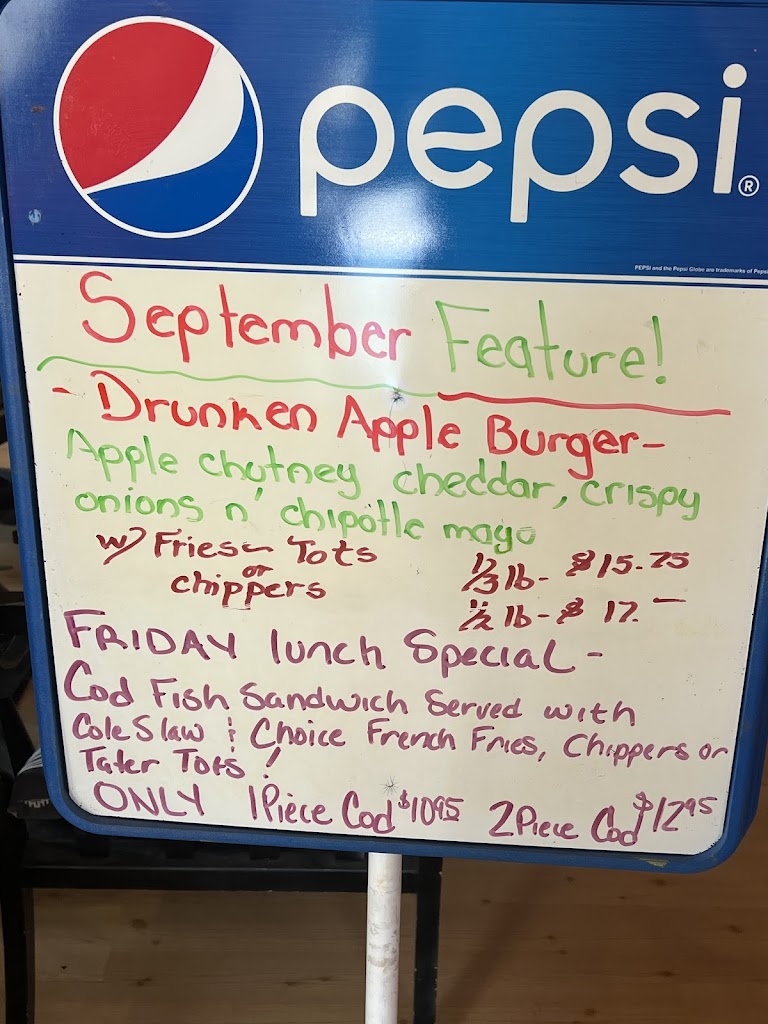 pepsi®
PEPSI and the Pepsi Globe are trademarks of Pepsi
September Feature!
- Drunken Apple Burger-
Apple chutney cheddar, crispy
onions n' chipotle mayo
w/ Fries~ Tots
or
chippers
1/3 lb- $15.75
1/2 lb- $ 17.-
FRIDAY lunch Special -
Cod Fish Sandwich Served with
Cole Slaw & Choice French Fries, Chippers or
Tater Tots!
ONLY 1 Piece Cod $10.95 2 Piece Cod $12.95